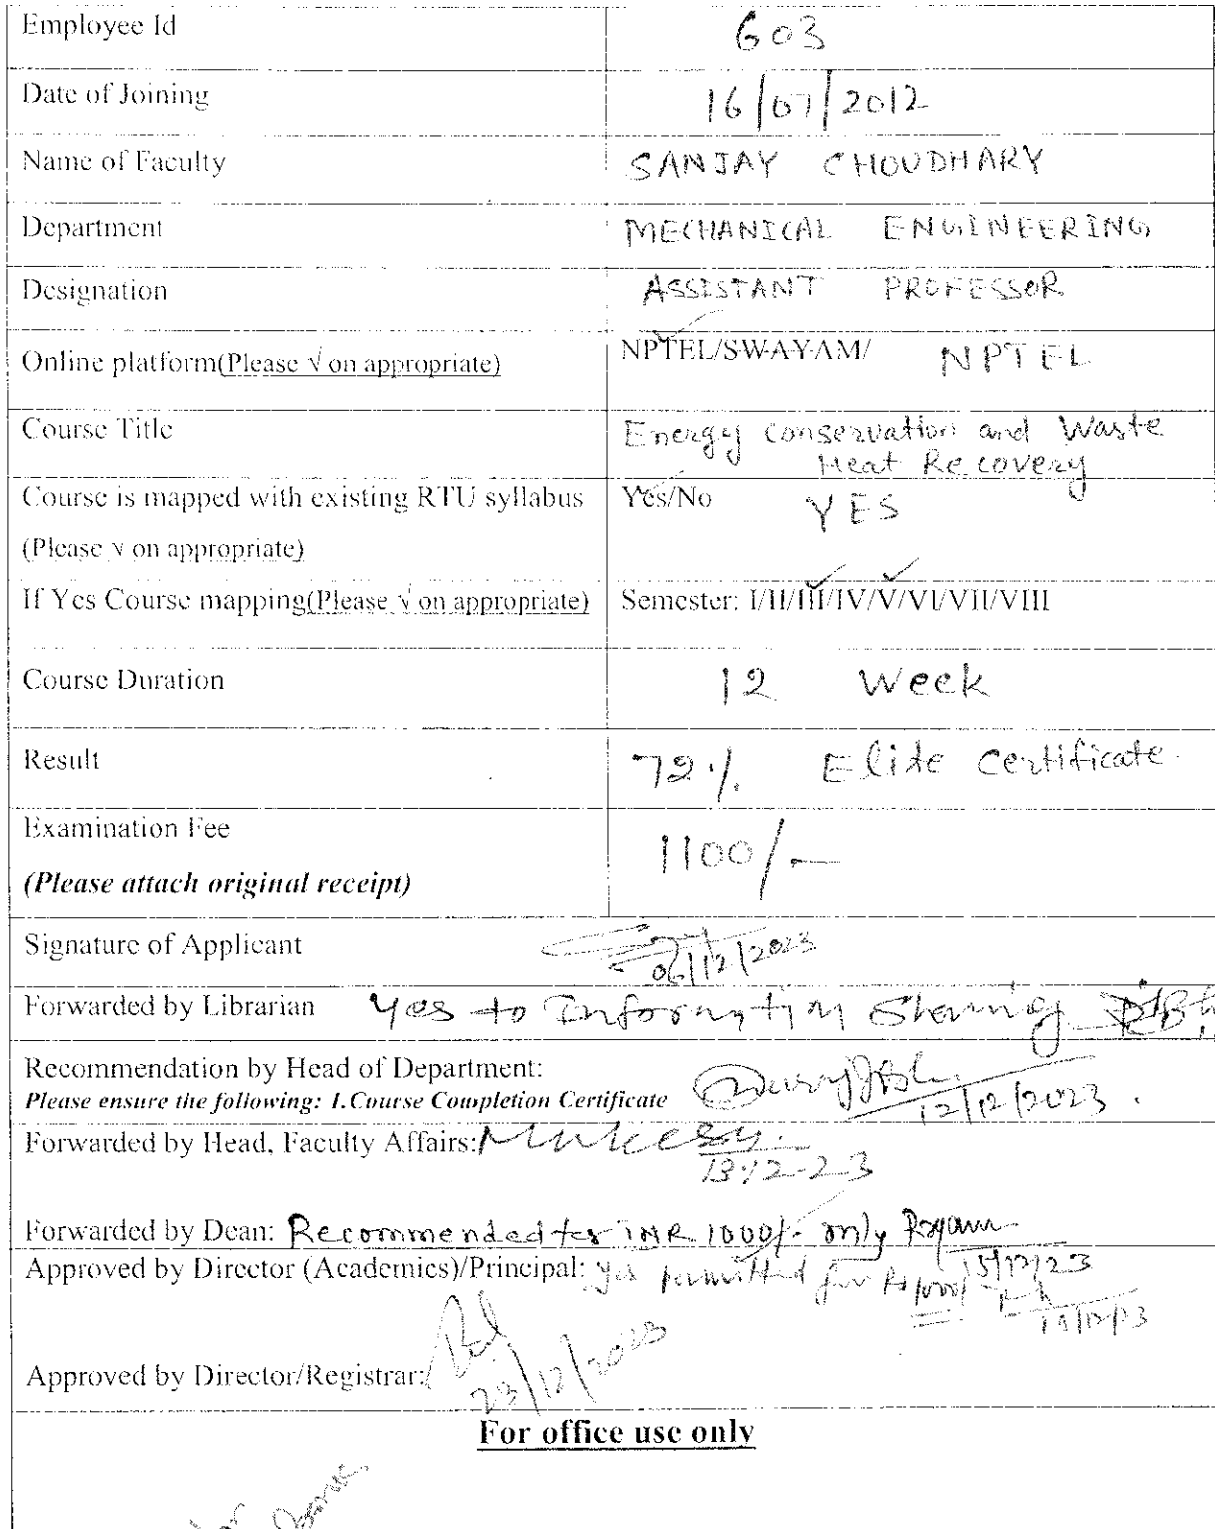 Employee Id 603
Date of Joining 16/07/2012
Name of Faculty SANJAY CHOUDHARY
Department MECHANICAL ENGINEERING
Designation ASSISTANT PROFESSOR
Online platform(Please √ on appropriate) NPTEL/SWAYAM/ NPTEL
Course Title Energy conservation and Waste
Heat Recovery
Course is mapped with existing RTU syllabus Yes/No YES
(Please √ on appropriate)
If Yes Course mapping(Please √ on appropriate) Semester: I/II/III/IV/V/VI/VII/VIII
Course Duration 12 Week
Result 72% Elite Certificate
Examination Fee 1100/-
(Please attach original receipt)
Signature of Applicant 06/12/2023
Forwarded by Librarian Yes to Information Sharing
Recommendation by Head of Department:
Please ensure the following: 1.Course Completion Certificate 12/12/2023.
Forwarded by Head, Faculty Affairs: Mukesh
13-12-23
Forwarded by Dean: Recommended for INR 1000/- only
15/12/23
Approved by Director (Academics)/Principal: Yes permitted for Rs 1000/-
Approved by Director/Registrar: 23/12/2023
For office use only